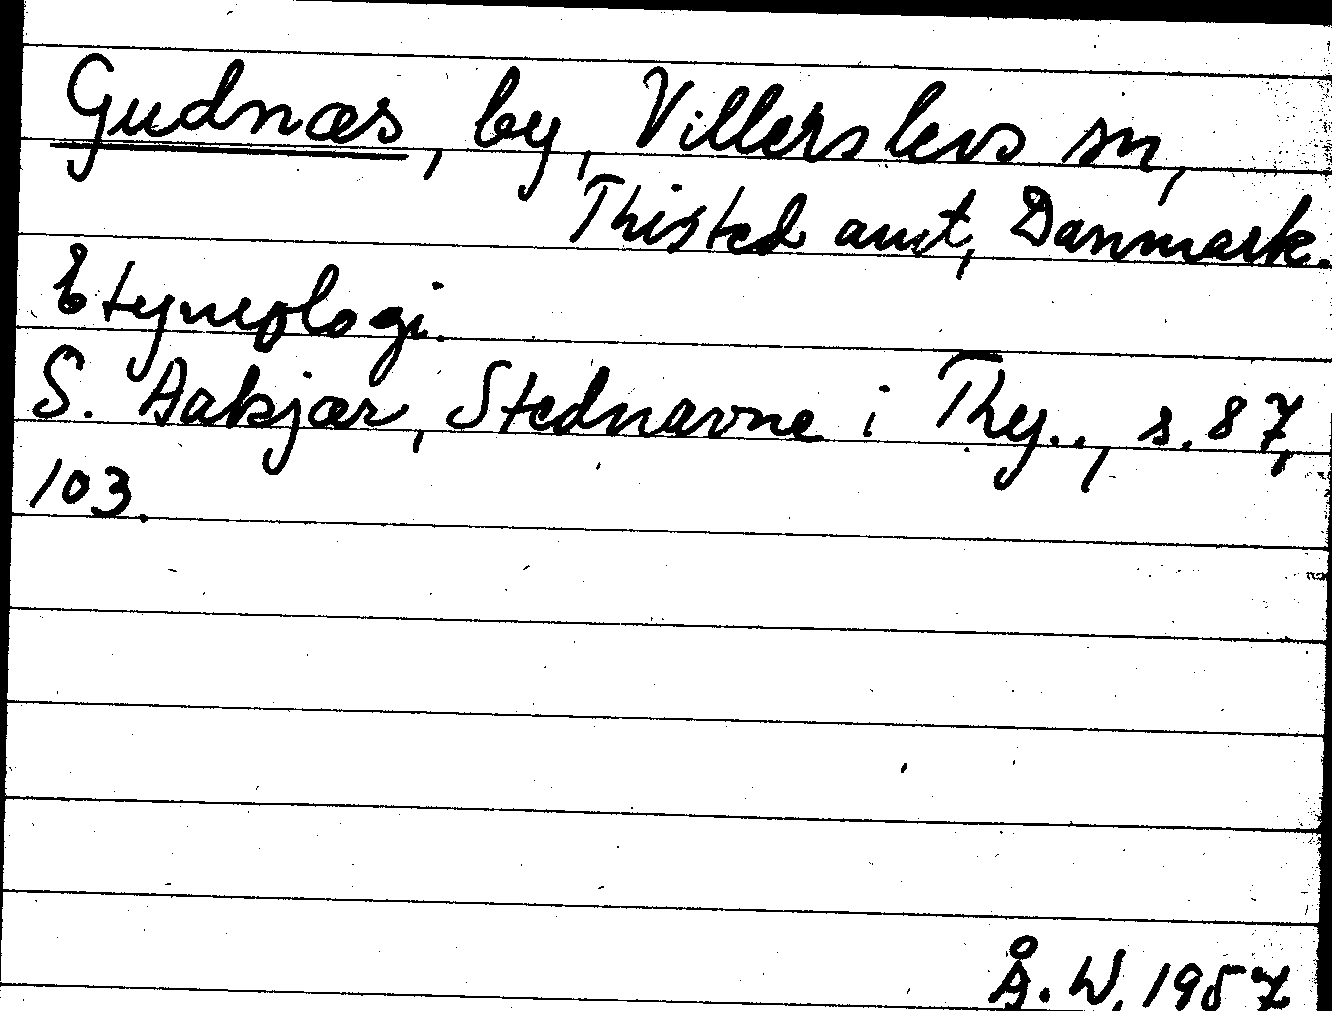 Gudnæs, by, Villerslevs sn,
Thisted amt, Danmark.
Etymologi.
S. Aakjær, Stednavne i Thy.., s. 87,
103.
Å. W. 1957